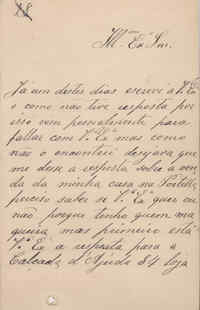 Mo. Exo. Snr.
Já um destes dias escrevi a V. Exa
e como não tive resposta por
isso vem pessoalmente para
fallar com V. Exa mas como
não o encontrei desejava que
me dese a resposta sobre a ven
da da minha casa na Portella
preciso saber si Va. Exa quer ou
não porque tenho quem ma
queira mas primeiro está
Va. Ex a resposta para a
Calçada d'Ajuda 84 loja